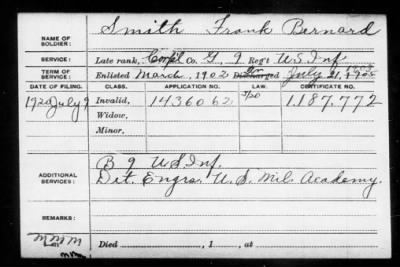 NAME OF SOLDIER: Smith Frank Bernard
SERVICE: Late rank, Corp'l Co. G, 9 Reg't U.S. Inf
TERM OF SERVICE: Enlisted March, 1902 Discharged July 21, 190
DATE OF FILING. CLASS. APPLICATION NO. LAW. CERTIFICATE NO.
1920 July 9 Invalid, 1436062 1,187,772
Widow,
Minor,
ADDITIONAL SERVICES: B 9 U.S. Inf.
Det. Engrs. U.S. Mil. Academy.
REMARKS:
Died , 1 , at